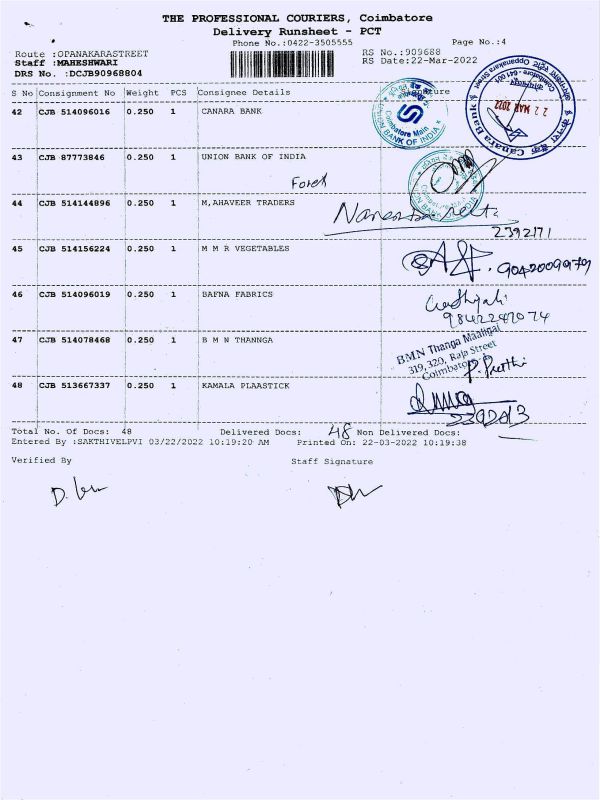 THE PROFESSIONAL COURIERS, Coimbatore
Delivery Runsheet - PCT
Phone No.:0422-3505555
Page No.:4
Route :OPANAKARASTREET
RS No.:909688
Staff :MAHESHWARI
RS Date:22-Mar-2022
DRS No. :DCJB90968804
S No Consignment No Weight PCS Consignee Details
42 CJB 514096016 0.250 1 CANARA BANK
22 MAR 2022
Canara Bank
Coimbatore Main
UNION BANK OF INDIA
43 CJB 87773846 0.250 1 UNION BANK OF INDIA
44 CJB 514144896 0.250 1 M,AHAVEER TRADERS
2392171
45 CJB 514156224 0.250 1 M M R VEGETABLES
46 CJB 514096019 0.250 1 BAFNA FABRICS
47 CJB 514078468 0.250 1 B M N THANNGA
BMN Thanga Maaligai
319, 320, Raja Street
Coimbatore
48 CJB 513667337 0.250 1 KAMALA PLAASTICK
Total No. Of Docs: 48 Delivered Docs: 48 Non Delivered Docs:
Entered By :SAKTHIVELPVI 03/22/2022 10:19:20 AM Printed On: 22-03-2022 10:19:38
Verified By Staff Signature